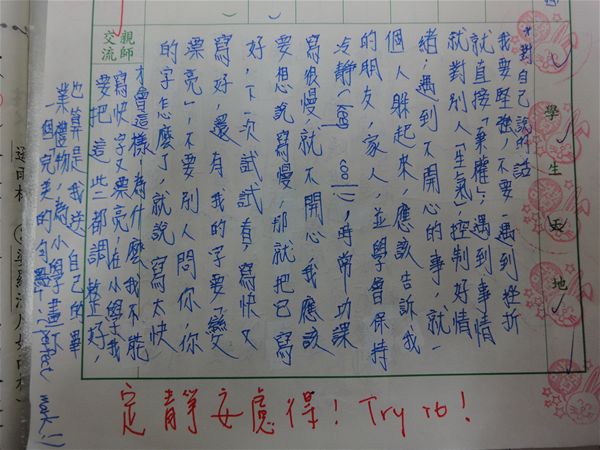 學生園地
*對自己說的話
我要堅強，不要一遇到挫折
就直接「棄權」；遇到事情
就對別人「生氣」，控制好情
緒；遇到不開心的事，就一
個人躲起來，應該告訴我
的朋友，家人，並學會保持
冷靜
時常功課
寫很慢，就不開心，我應該
要想說寫慢，那就把它寫
好，下一次試試看，寫快又
寫好，還有我的字要變
票亮」，不要別人問你，你
的字怎麼了，就說寫太快
才會這樣，為什麼我不能
寫快字又票亮，在小學我
要把這些都調整好，
也算是我送自己的畢
業禮物，為小學畫下
一個完美的句
親師交流
定靜安慮得！Try it！